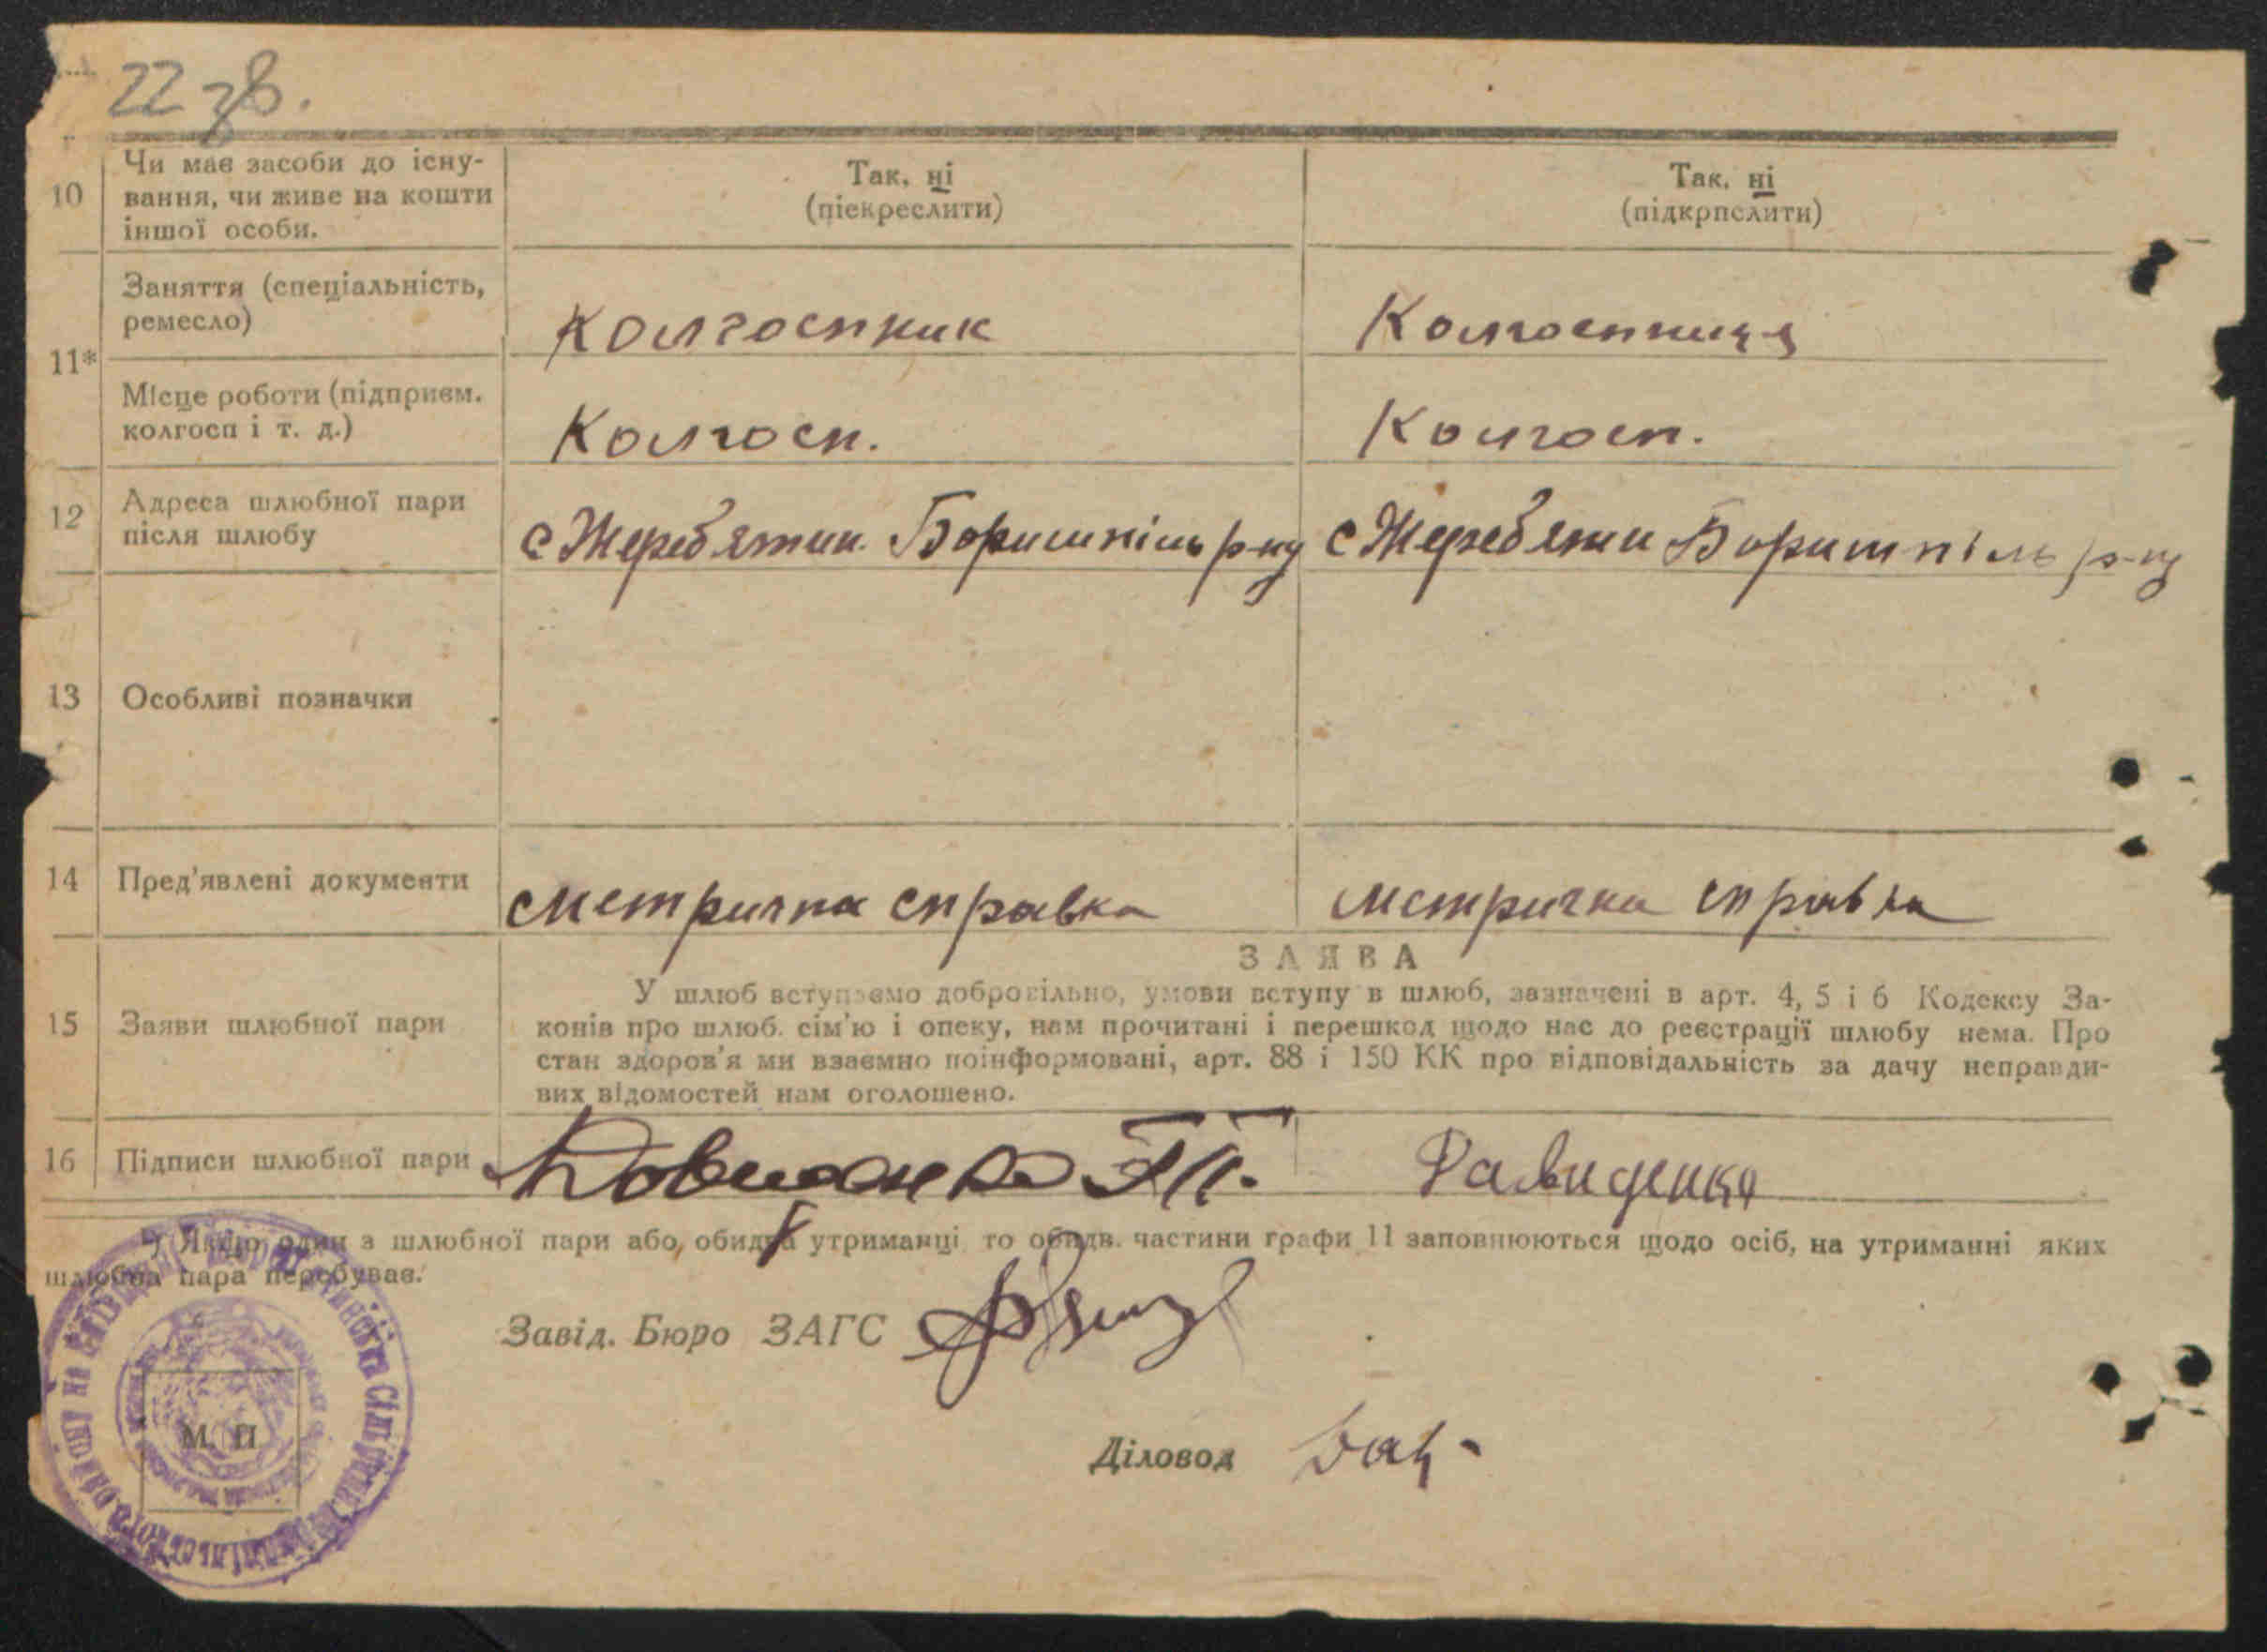 22 зв.
10
Чи має засоби до існу-
вання, чи живе на кошти
іншої особи.
Так, ні
(піекреслити)
Так, ні
(підкрпслити)
11*
Заняття (спеціальність,
ремесло)
Колгоспник
Колгоспниця
Місце роботи (підприєм.
колгосп і т. д.)
Колгосп.
Колгосп.
12
Адреса шлюбної пари
після шлюбу
с Жереб'ятин. Боришпіль р-ну
с Жереб'яти Боришпіль р-ну
13
Особливі позначки
14
Пред'явлені документи
метрична справка
метрична справка
15
Заяви шлюбної пари
ЗАЯВА
У шлюб вступаємо добровільно, умови вступу в шлюб, зазначені в арт. 4, 5 і 6 Кодексу За-
конів про шлюб. сім'ю і опеку, нам прочитані і перешкод щодо нас до реєстрації шлюбу нема. Про
стан здоров'я ми взаємно поінформовані, арт. 88 і 150 КК про відповідальність за дачу неправди-
вих відомостей нам оголошено.
16
Підписи шлюбної пари
Давиденко
*) Якщо один з шлюбної пари або обидва утриманці то обидв. частини графи 11 заповнюються щодо осіб, на утриманні яких
шлюбна пара перебуває.
Завід. Бюро ЗАГС
Діловод
М. П